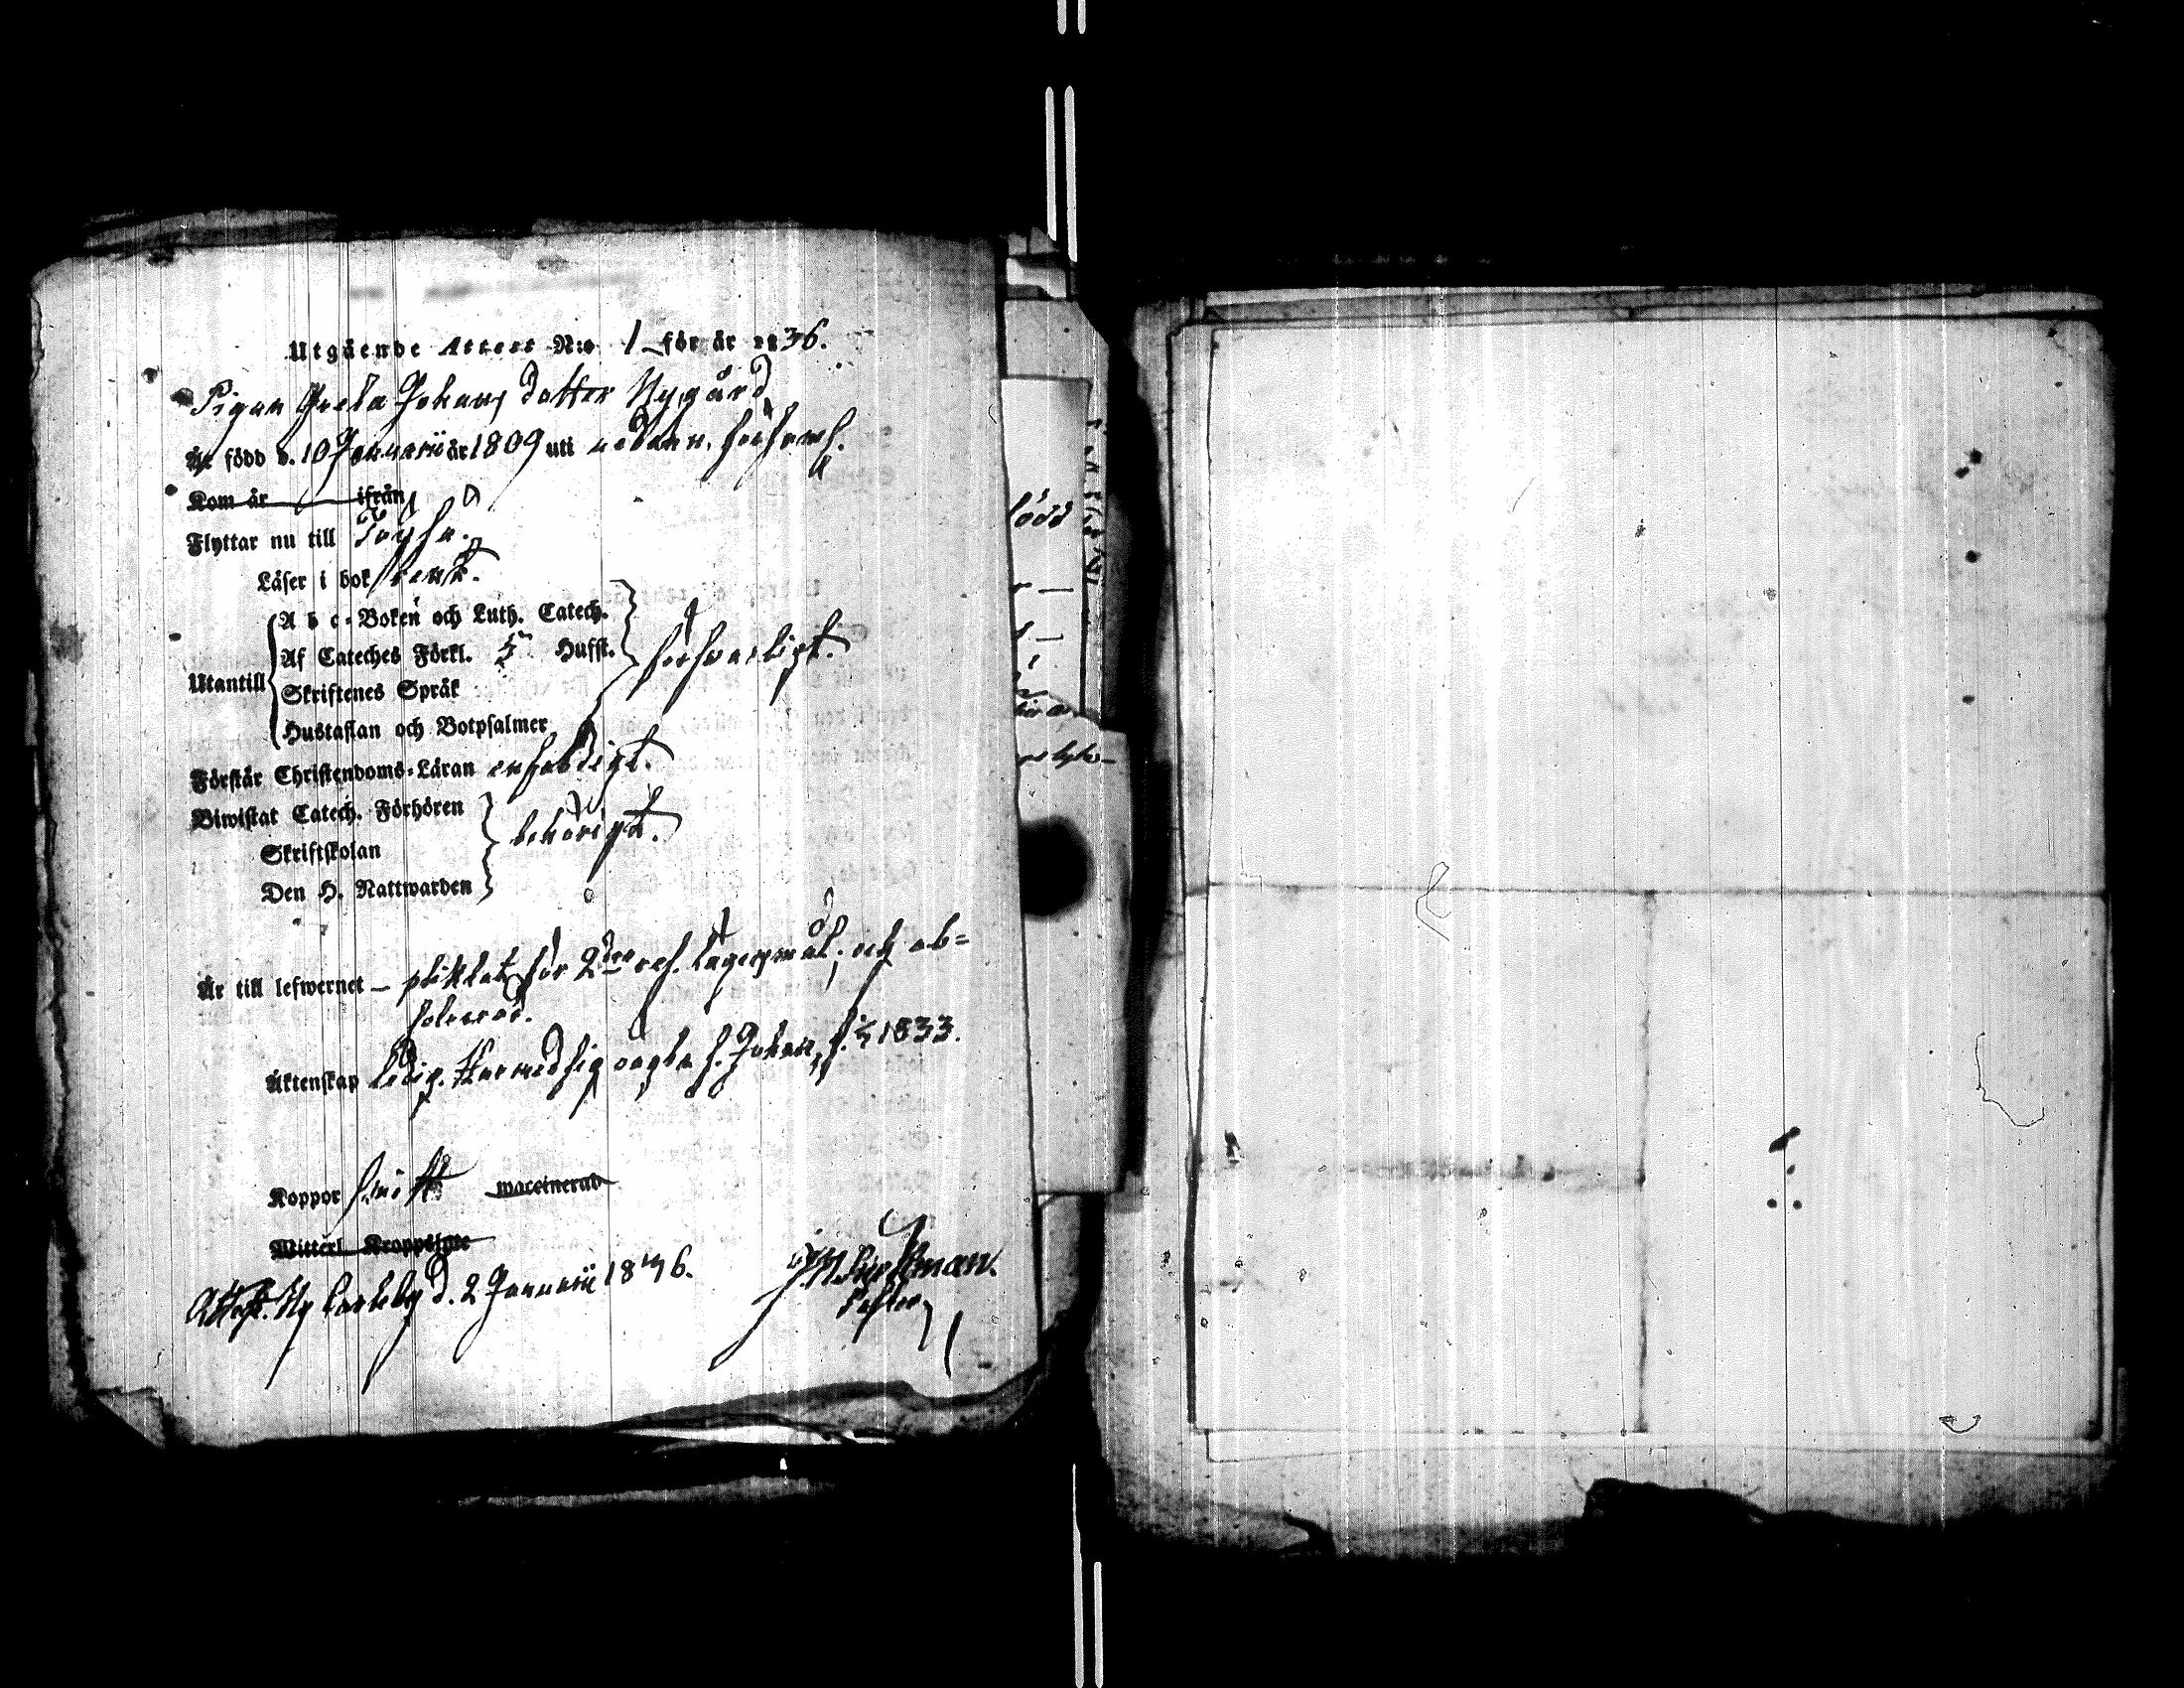 Utgående Attest N:o 1 för år 1836.
Pigan Greta Johans dotter Nygård
Är född d. 10 Januarii år 1809 uti nedann. församl.
Kom år ifrån
Flyttar nu till
Läser i bok rent.
A b c-Boken och Luth. Catech.
Af Cateches Förkl. 5 Hufst. försvarligt.
Utantill
Skriftenes Språk
Hustaflan och Botpsalmer
Förstår Christendoms-Läran enfaldigt.
Biwistat Catech. Förhören
behörigt.
Skriftskolan
Den H. Nattwarden
Är till lefwernet — pliktat för 2dra lägersmål, och ab=
solverad.
Äktenskap ledig. Har med sig oägta s. Johan, f. 1833.
Koppor haft waccinerad
Witterl. Kroppslyte
Attest. Ny Carleby d. 2 Januarii 1836.
Pastor
född